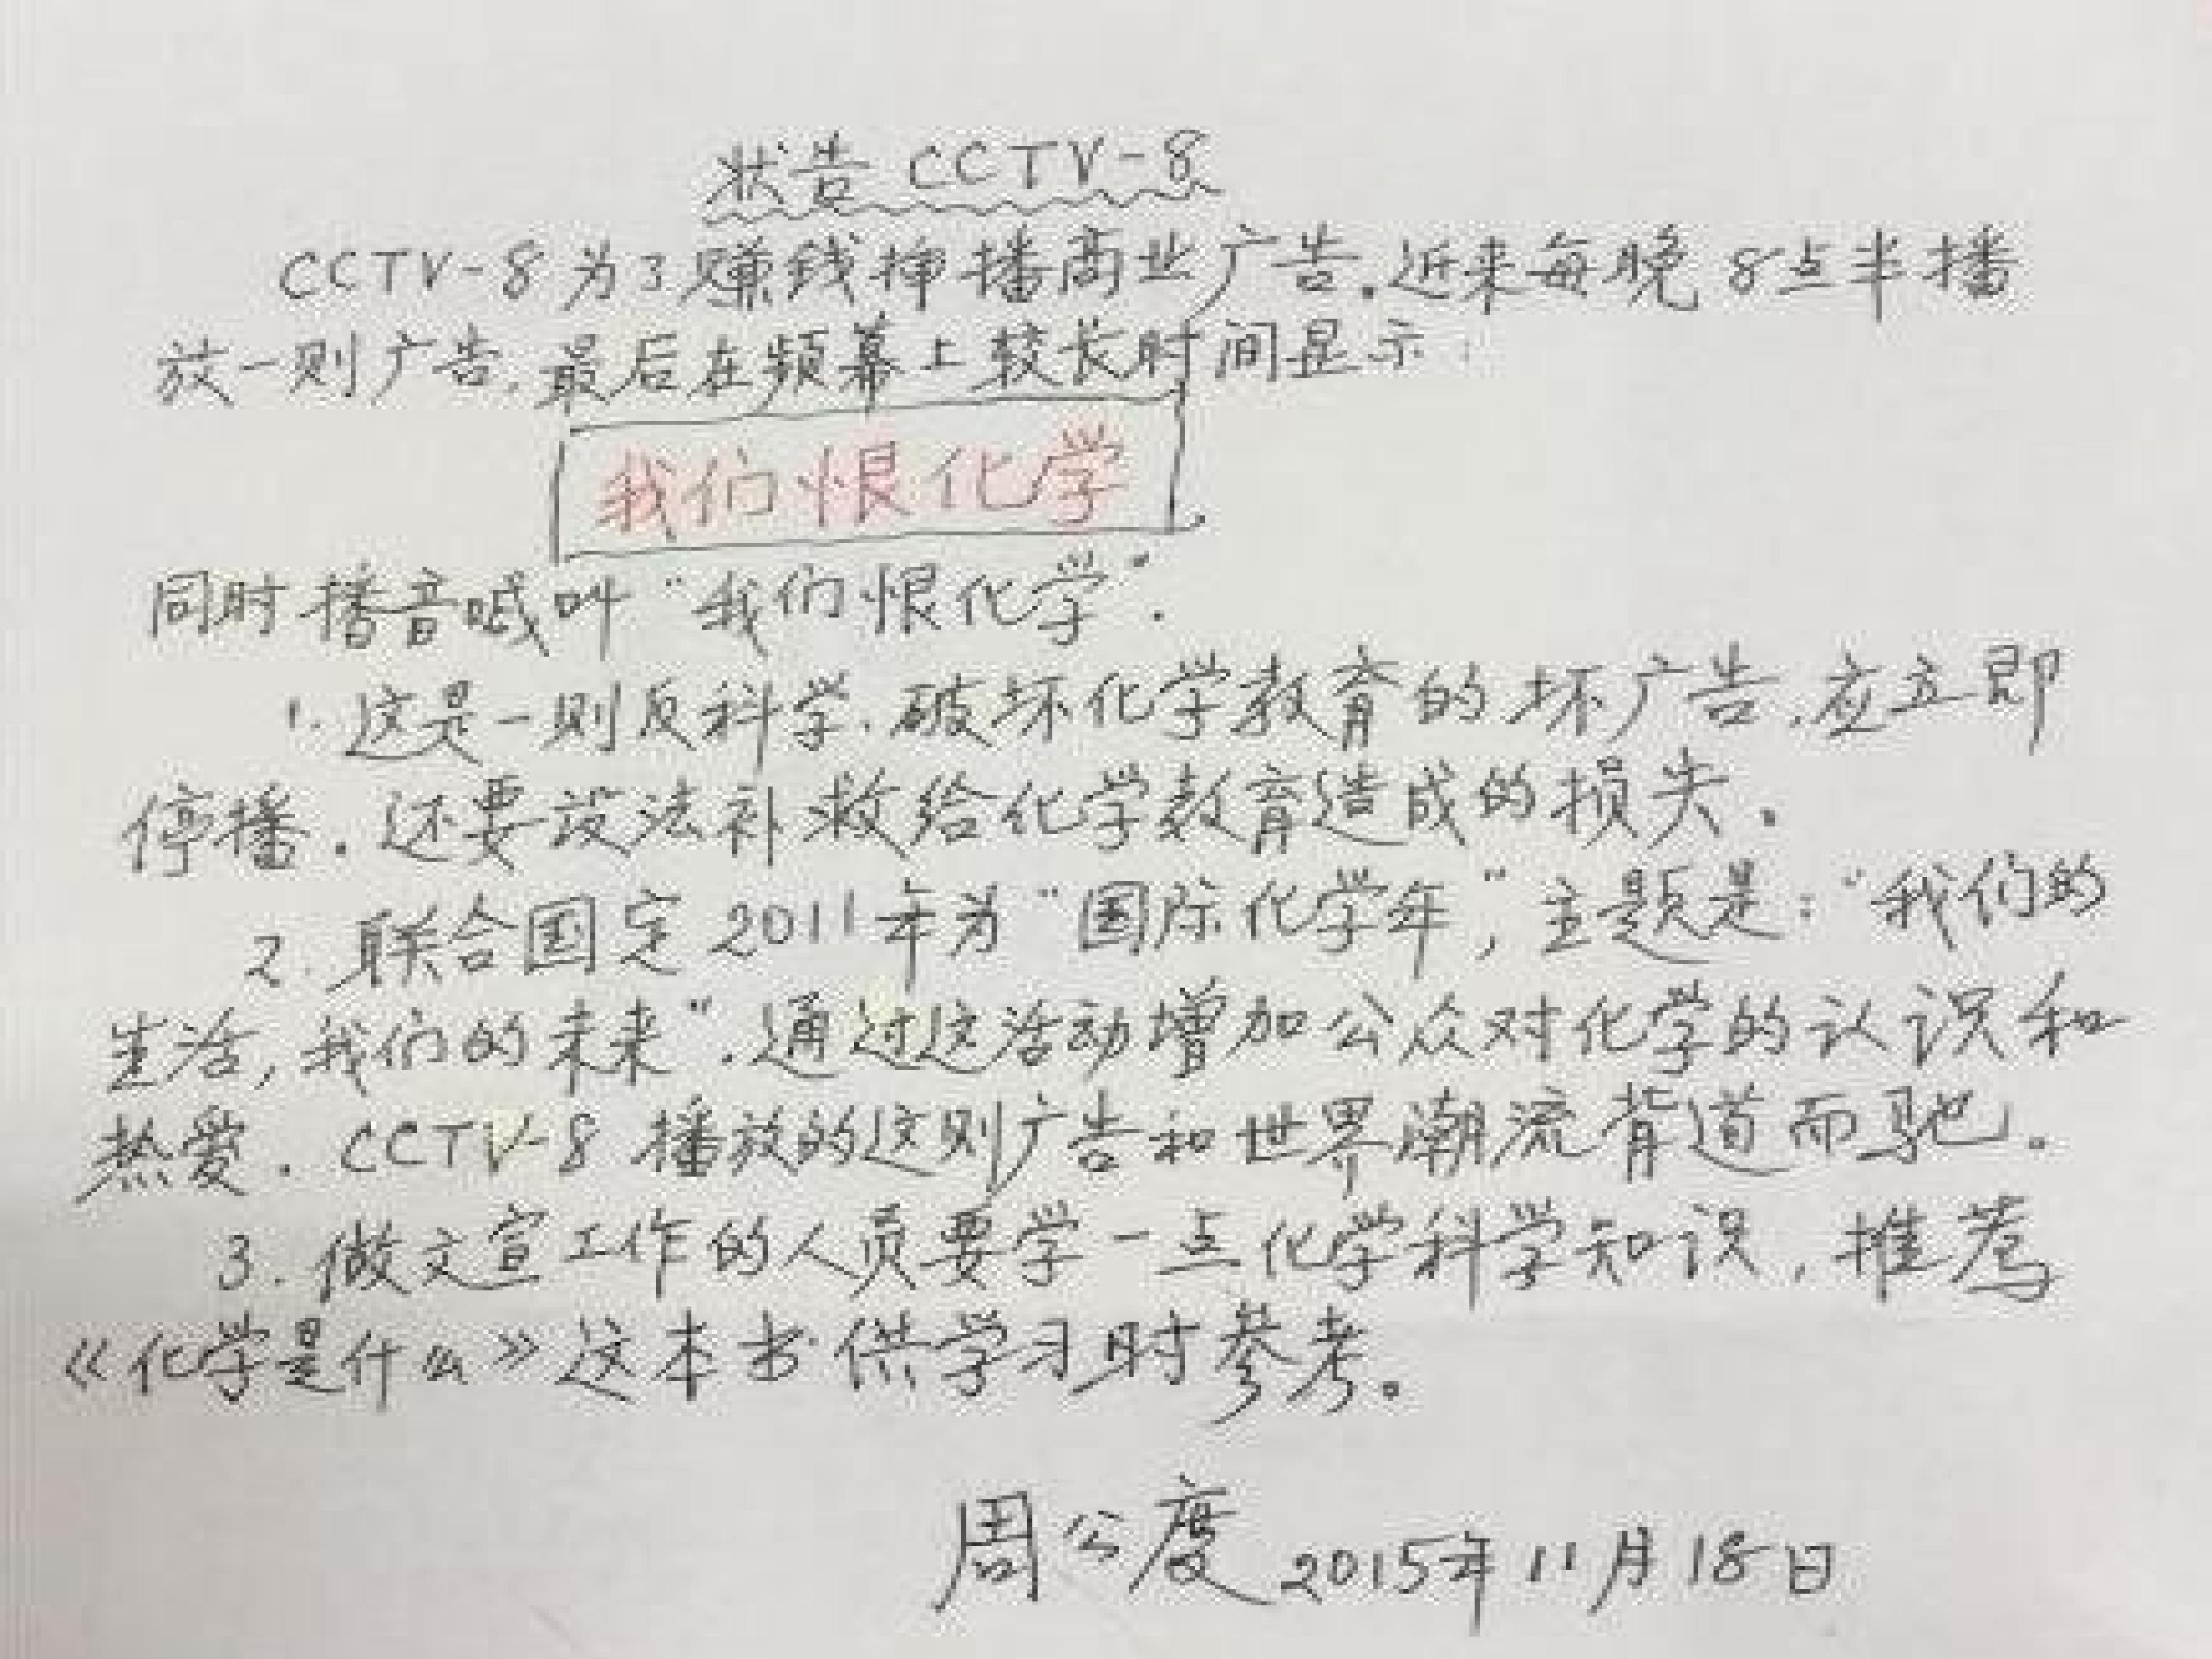 状告 CCTV-8
CCTV-8为了赚钱插播商业广告.近来每晚8点半播
放一则广告,最后在频幕上较长时间显示:
我们恨化学.
同时播音喊叫“我们恨化学”.
1. 这是一则反科学.破坏化学教育的坏广告,应立即
停播.还要设法补救给化学教育造成的损失.
2. 联合国定2011年为“国际化学年”,主题是:“我们的
生活,我们的未来”.通过这活动增加公众对化学的认识和
热爱.CCTV-8播放的这则广告和世界潮流背道而驰.
3. 做文宣工作的人员要学一点化学科学知识,推荐
《化学是什么》这本书供学习时参考。
周公度 2015年11月18日